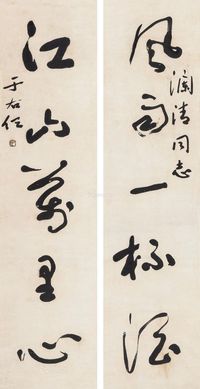 风雨一杯酒
澜清同志
江山万里心
于右任